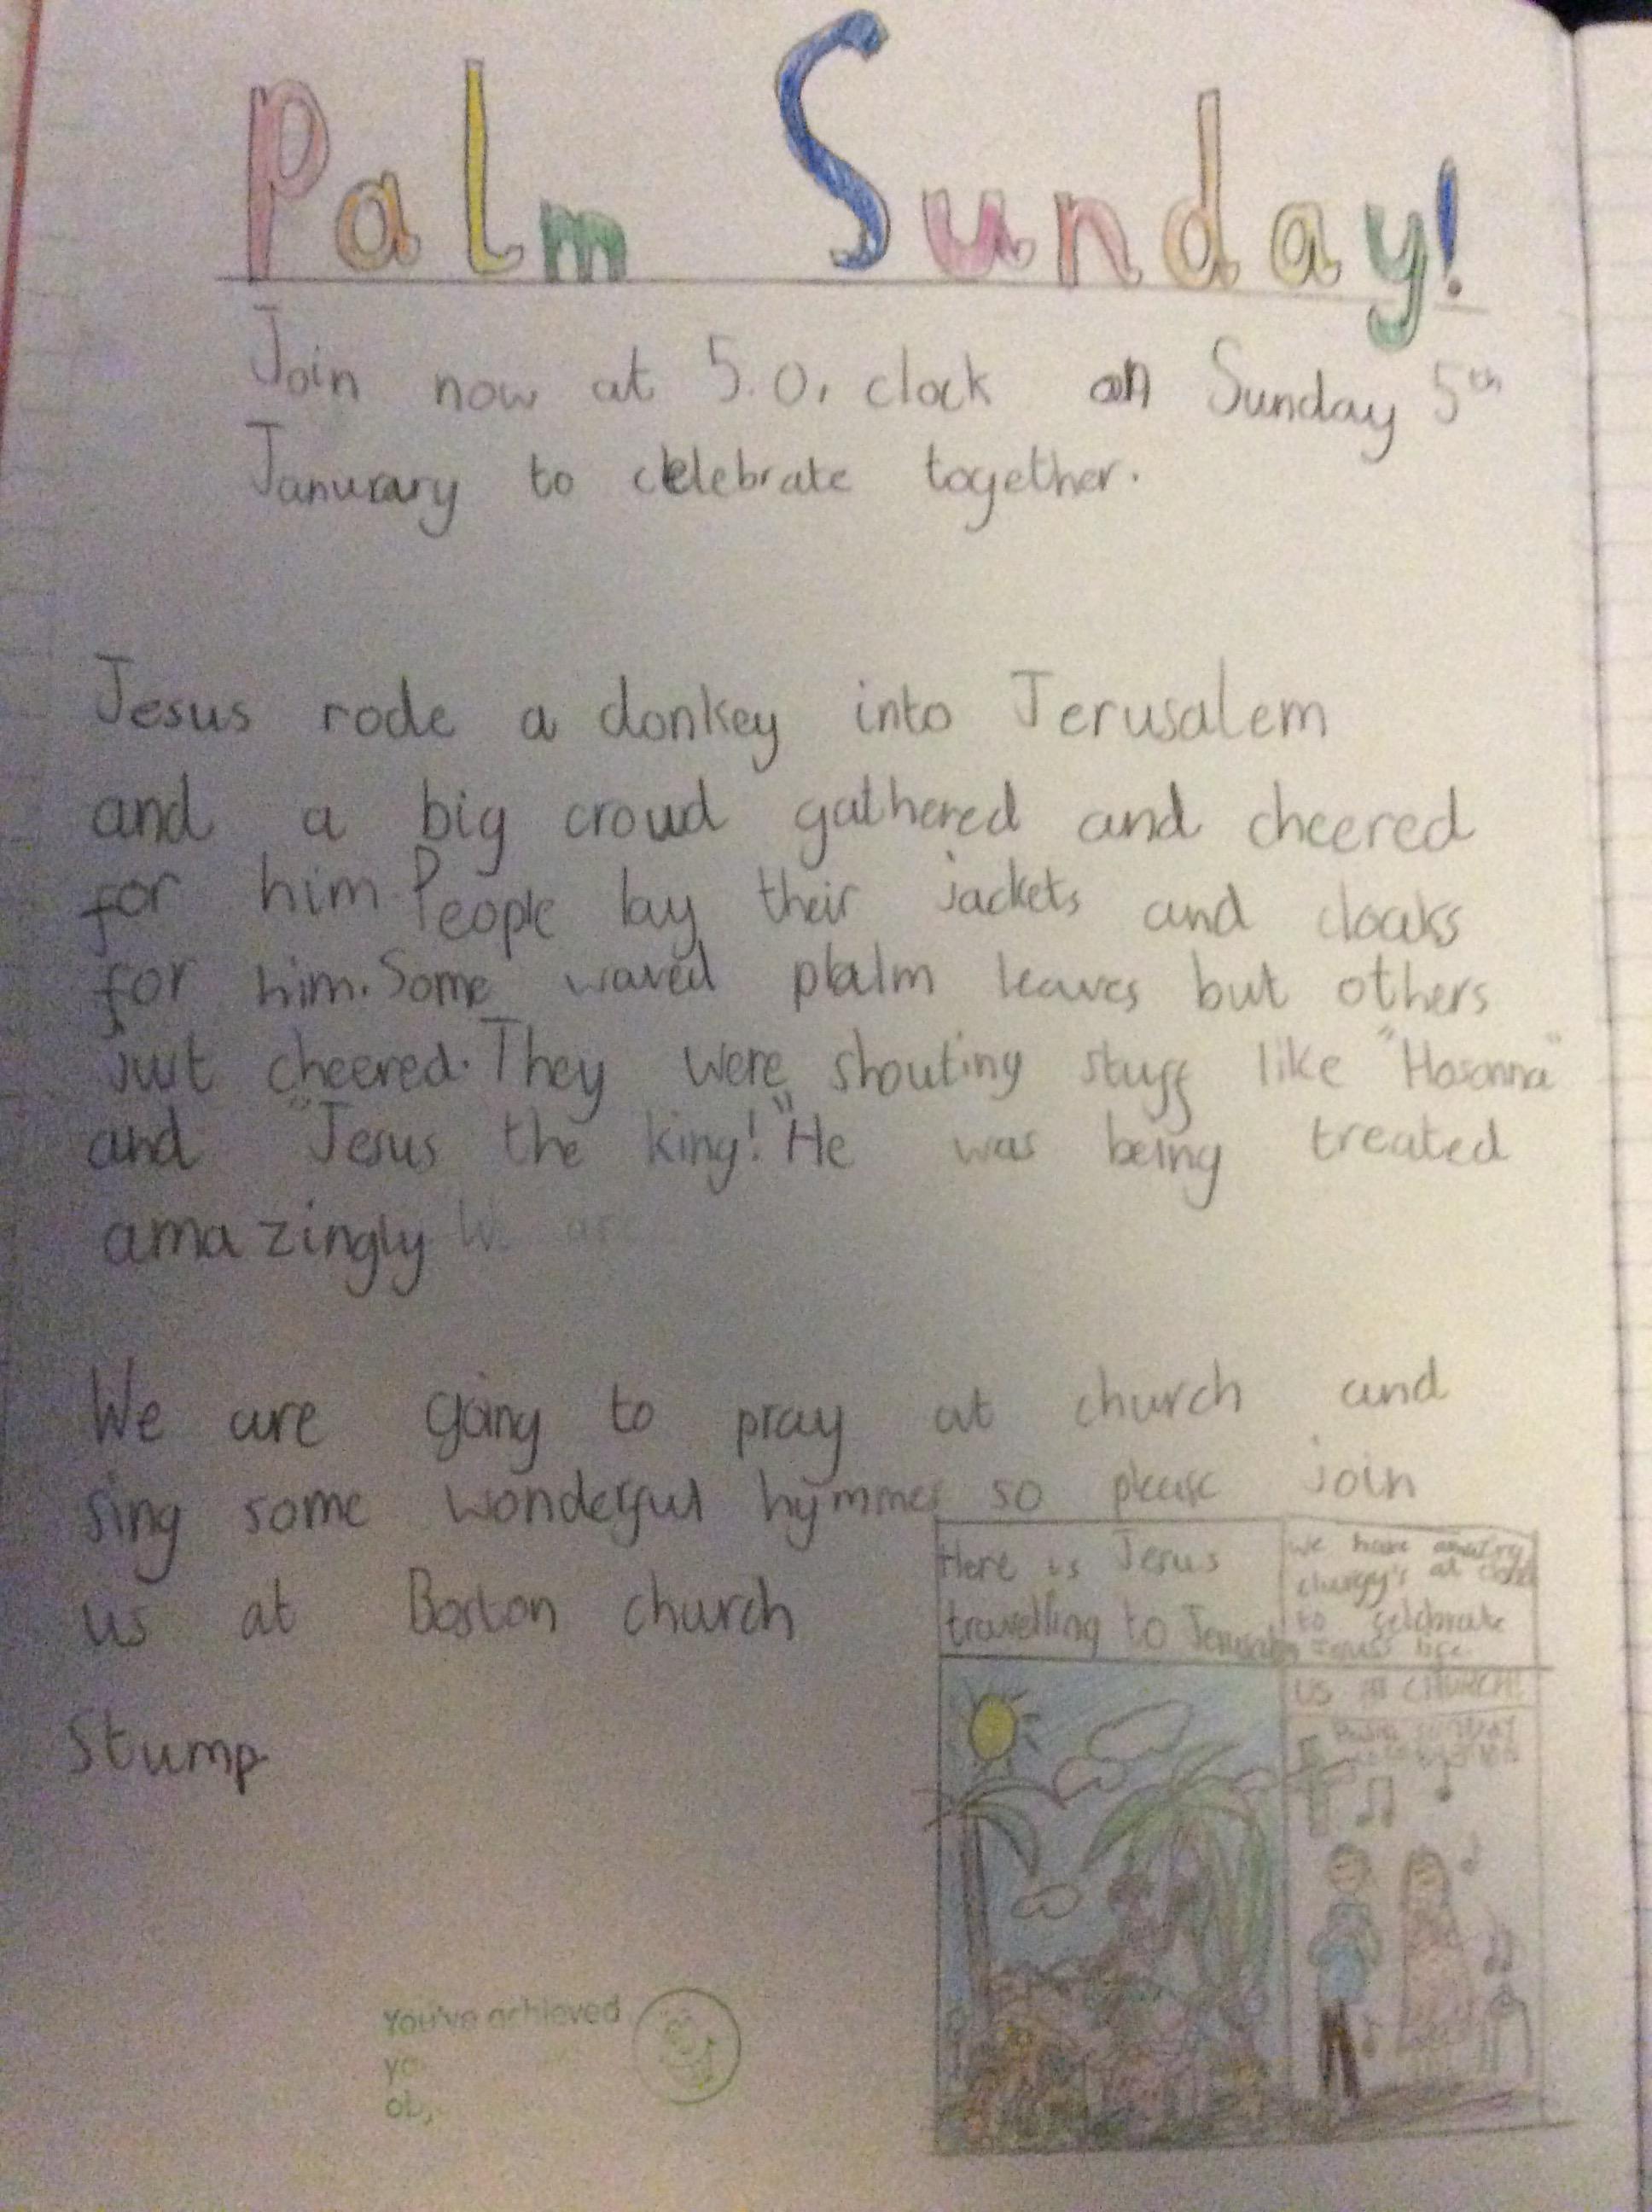 Palm Sunday!
Join now at 5.0, clock on Sunday 5th
Janurary to celebrate together.
Jesus rode a donkey into Jerusalem
and a big croud gathered and cheered
for him. People lay their jackets and cloaks
for him. Some waved palm leaves but others
just cheered. They were shouting stuff like "Hosanna"
and "Jesus the king!" He was being treated
amazingly
We are going to pray at church and
sing some wonderful hymmes so please join
us at Boston church
Stump
Here is Jesus
travelling to Jerusalem
We have amazing
clurgy's at
to celebrate
life.
US AT CHURCH!
You've achieved